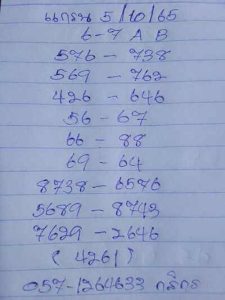 5/10/65
6-7 A B
576 - 738
569 - 762
426 - 646
56 - 67
66 - 88
69 - 64
8738 - 6576
5689 - 8743
7629 - 2646
(4261)
057-1264633 กสิกร